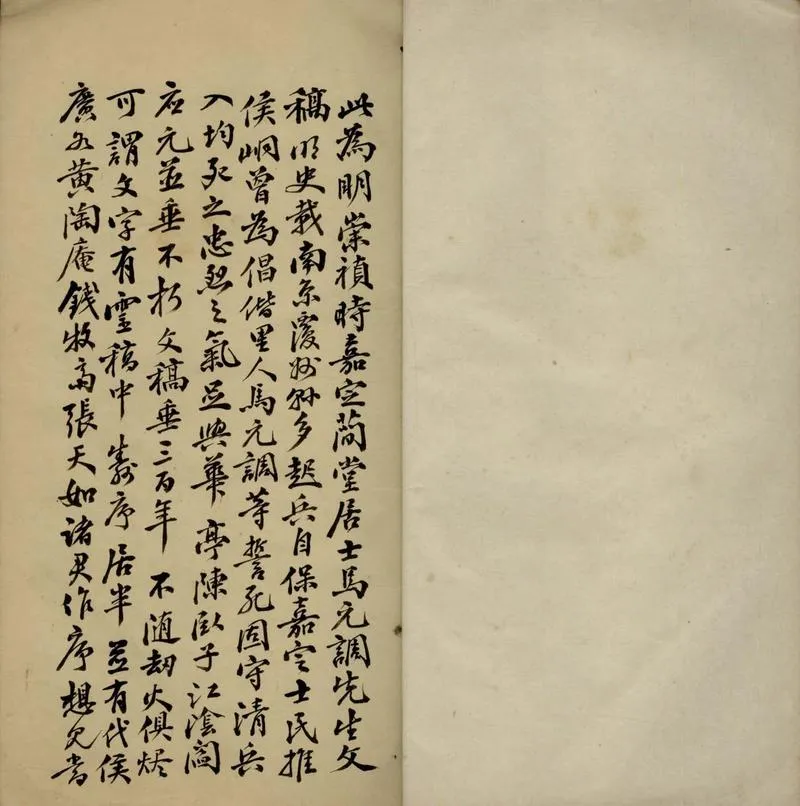 此為明崇禎時嘉定簡堂居士馬元調先生文
稿明史載南京覆州縣多起兵自保嘉定士民推
侯峒曾為倡偕里人馬元調等誓死固守清兵
入均死之忠烈之氣足與華亭陳臥子江陰閻
应元並垂不朽文稿垂三百年不隨劫火俱燼
可謂文字有靈稿中壽序居半並有代侯
廣成黃陶庵錢牧斋張天如諸君作序想見當